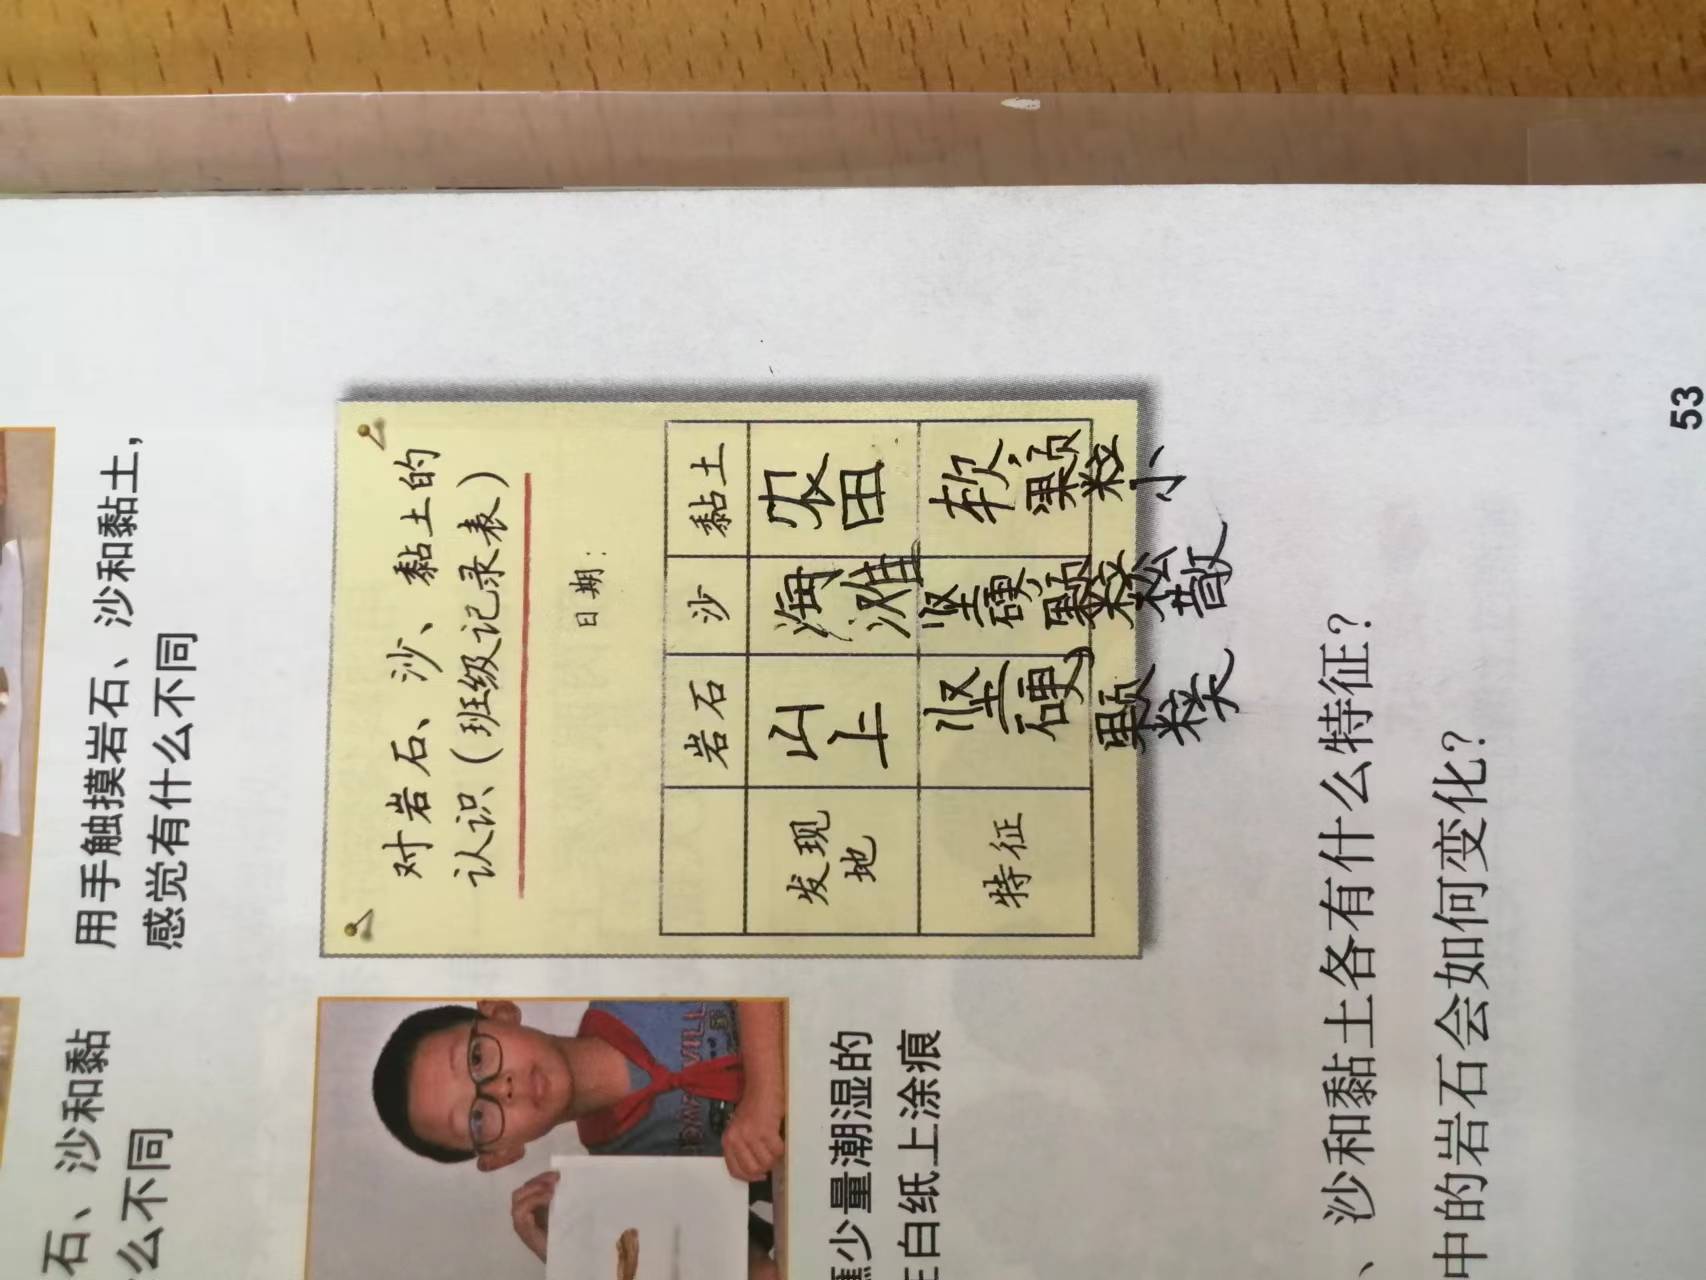 石、沙和黏
么不同
用手触摸岩石、沙和黏土，
感觉有什么不同
对岩石、沙、黏土的
认识（班级记录表）
日期：
岩石 沙 黏土
发现地 山上 海滩 农田
特征 坚硬，颗粒大 坚硬，颗粒松散 软，颗粒小
蘸少量潮湿的
在白纸上涂痕
、沙和黏土各有什么特征？
中的岩石会如何变化？
53